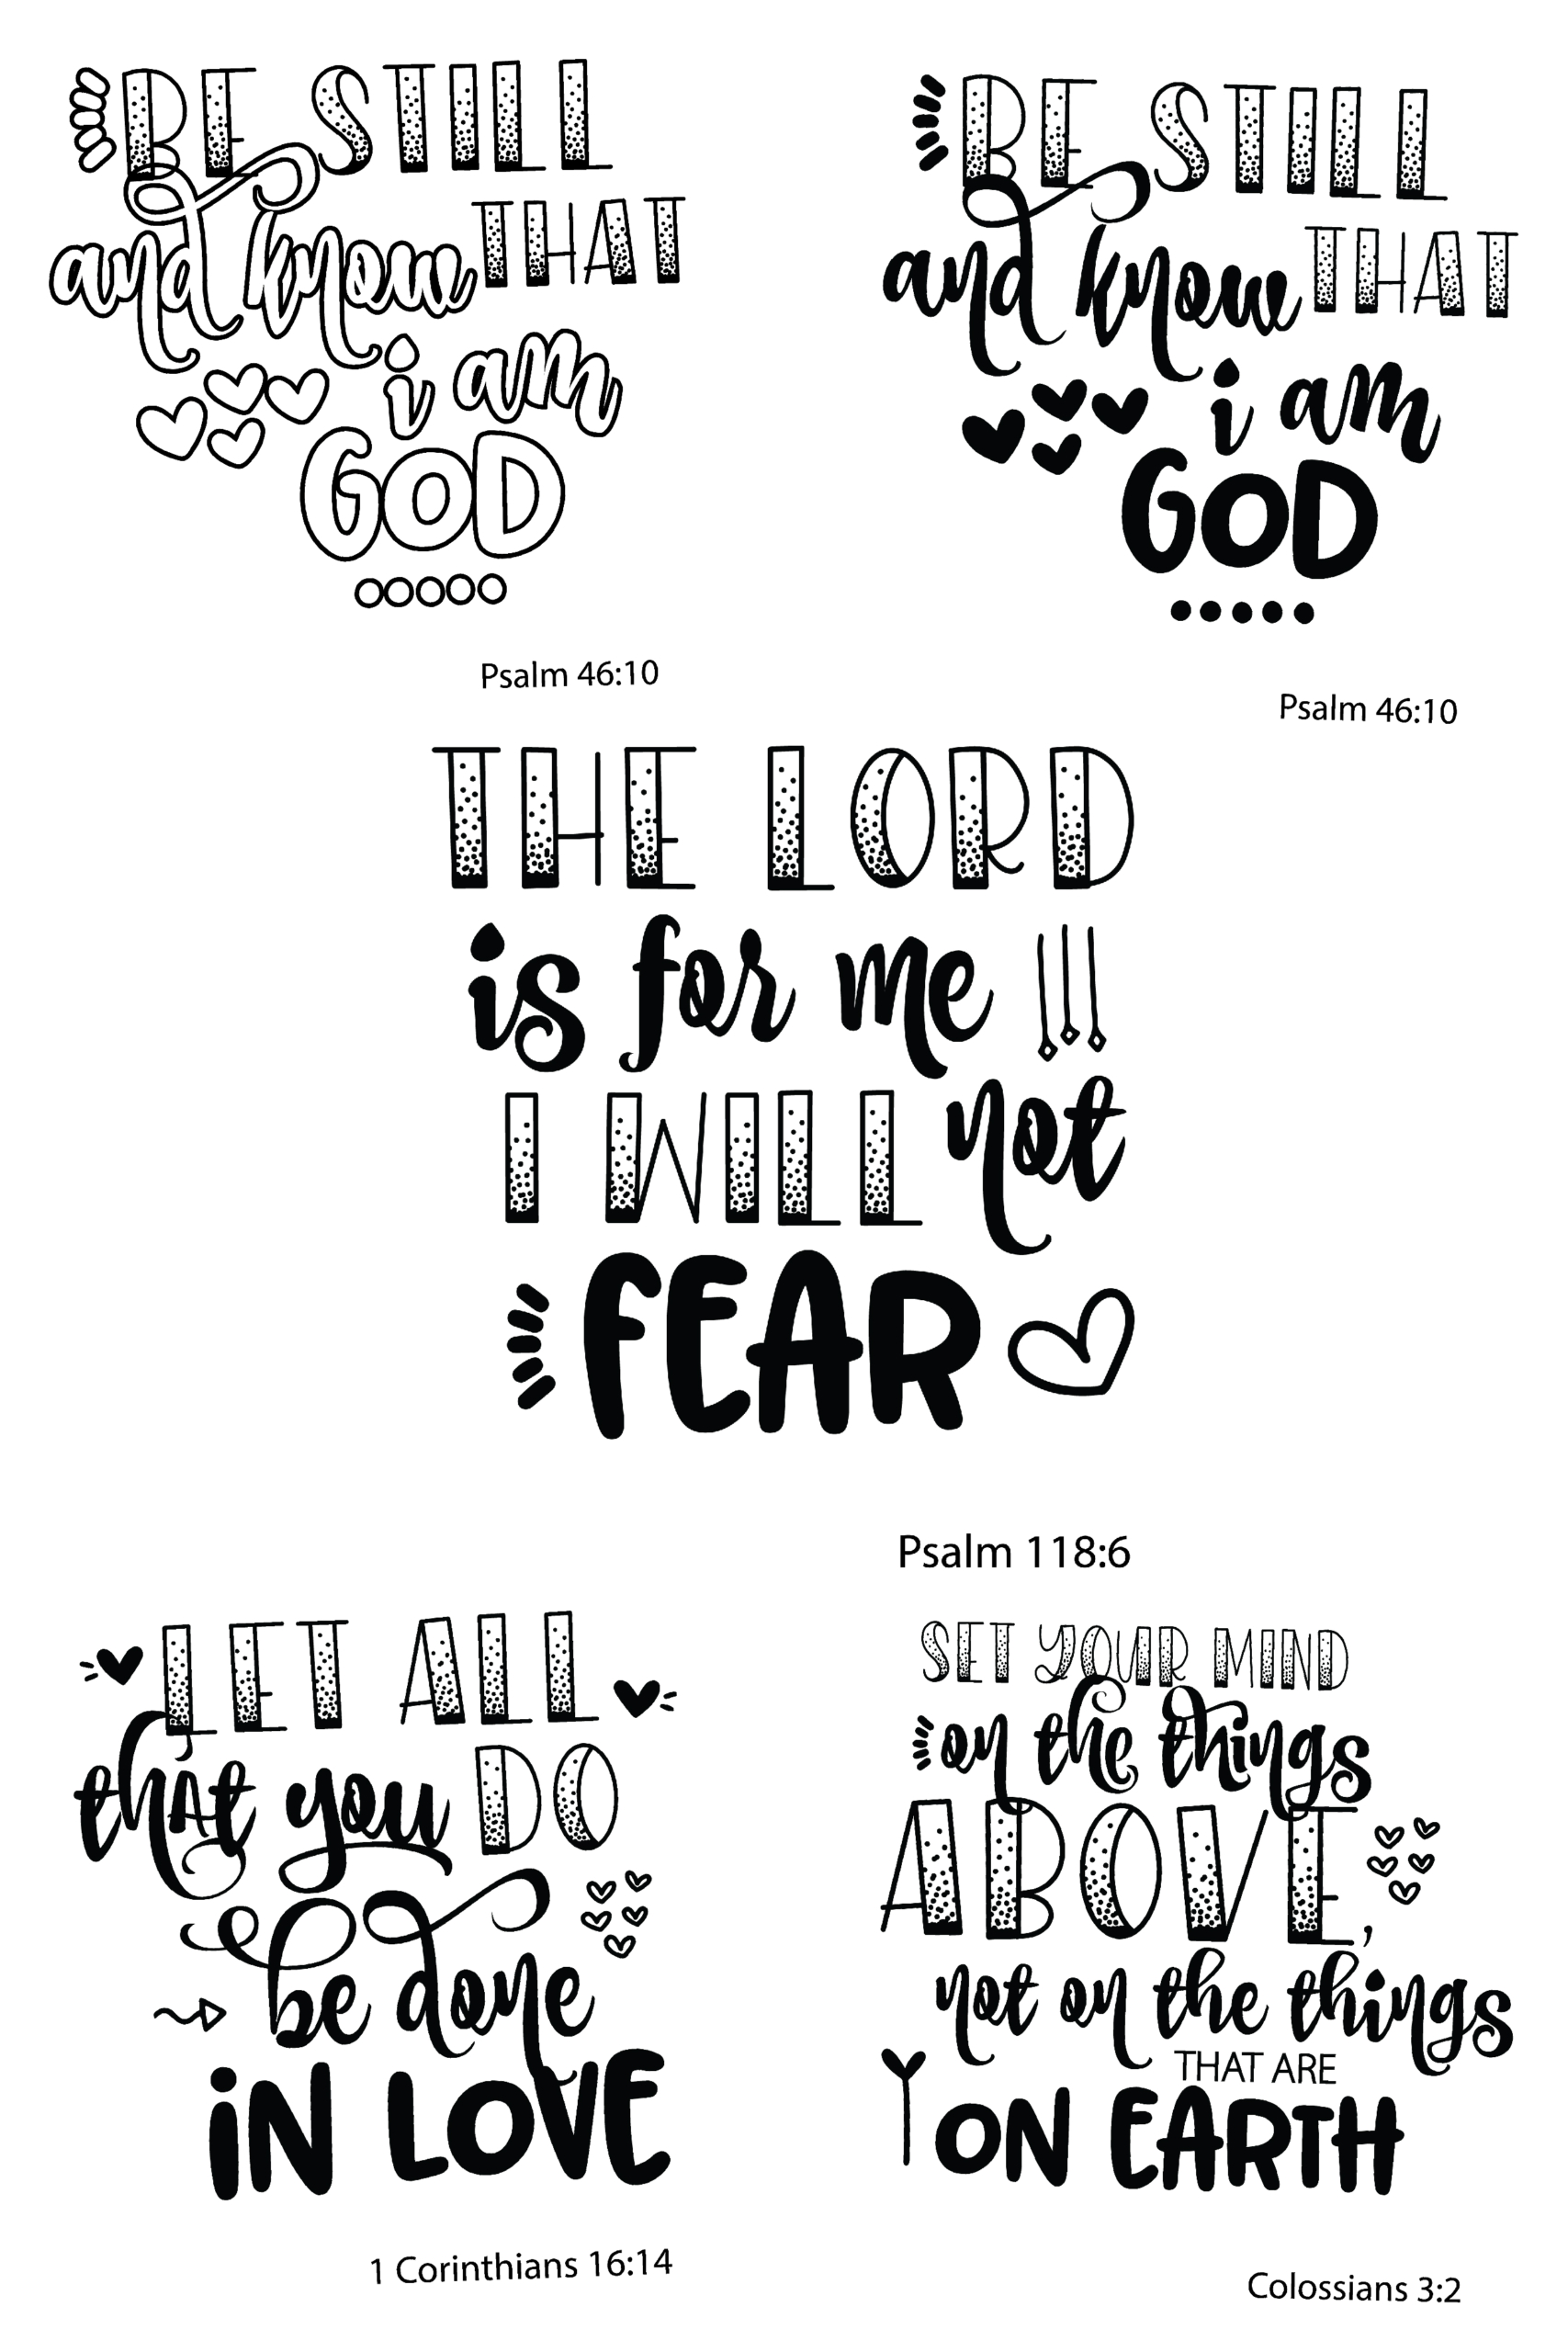 BE STILL
and know THAT
i am
GOD
Psalm 46:10
BE STILL
and know THAT
i am
GOD
Psalm 46:10
THE LORD
is for me
I WILL not
FEAR
Psalm 118:6
LET ALL
thAt you DO
be done
iN LOVE
1 Corinthians 16:14
SET YOUR MIND
on the things
ABOVE,
not on the things
THAT ARE
ON EARTH
Colossians 3:2